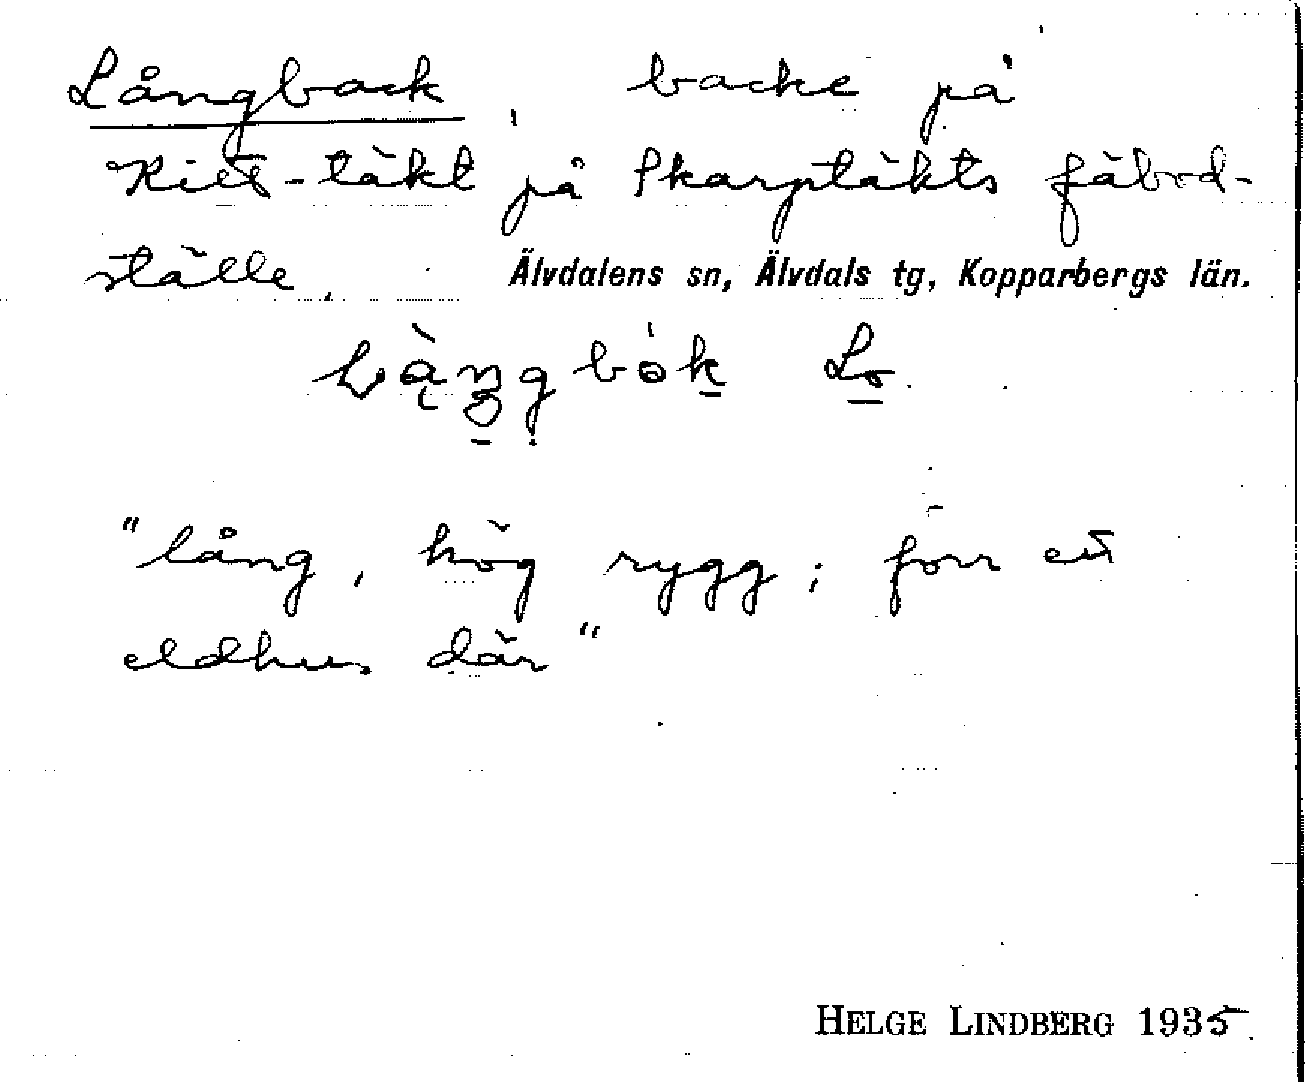 Långback, backe på
-täkt på Skarptäkts fäbod-
ställe, Älvdalens sn, Älvdals tg, Kopparbergs län.
Lo.
"lång, hög rygg; förr ett
eldhus där"
HELGE LINDBERG 1935.